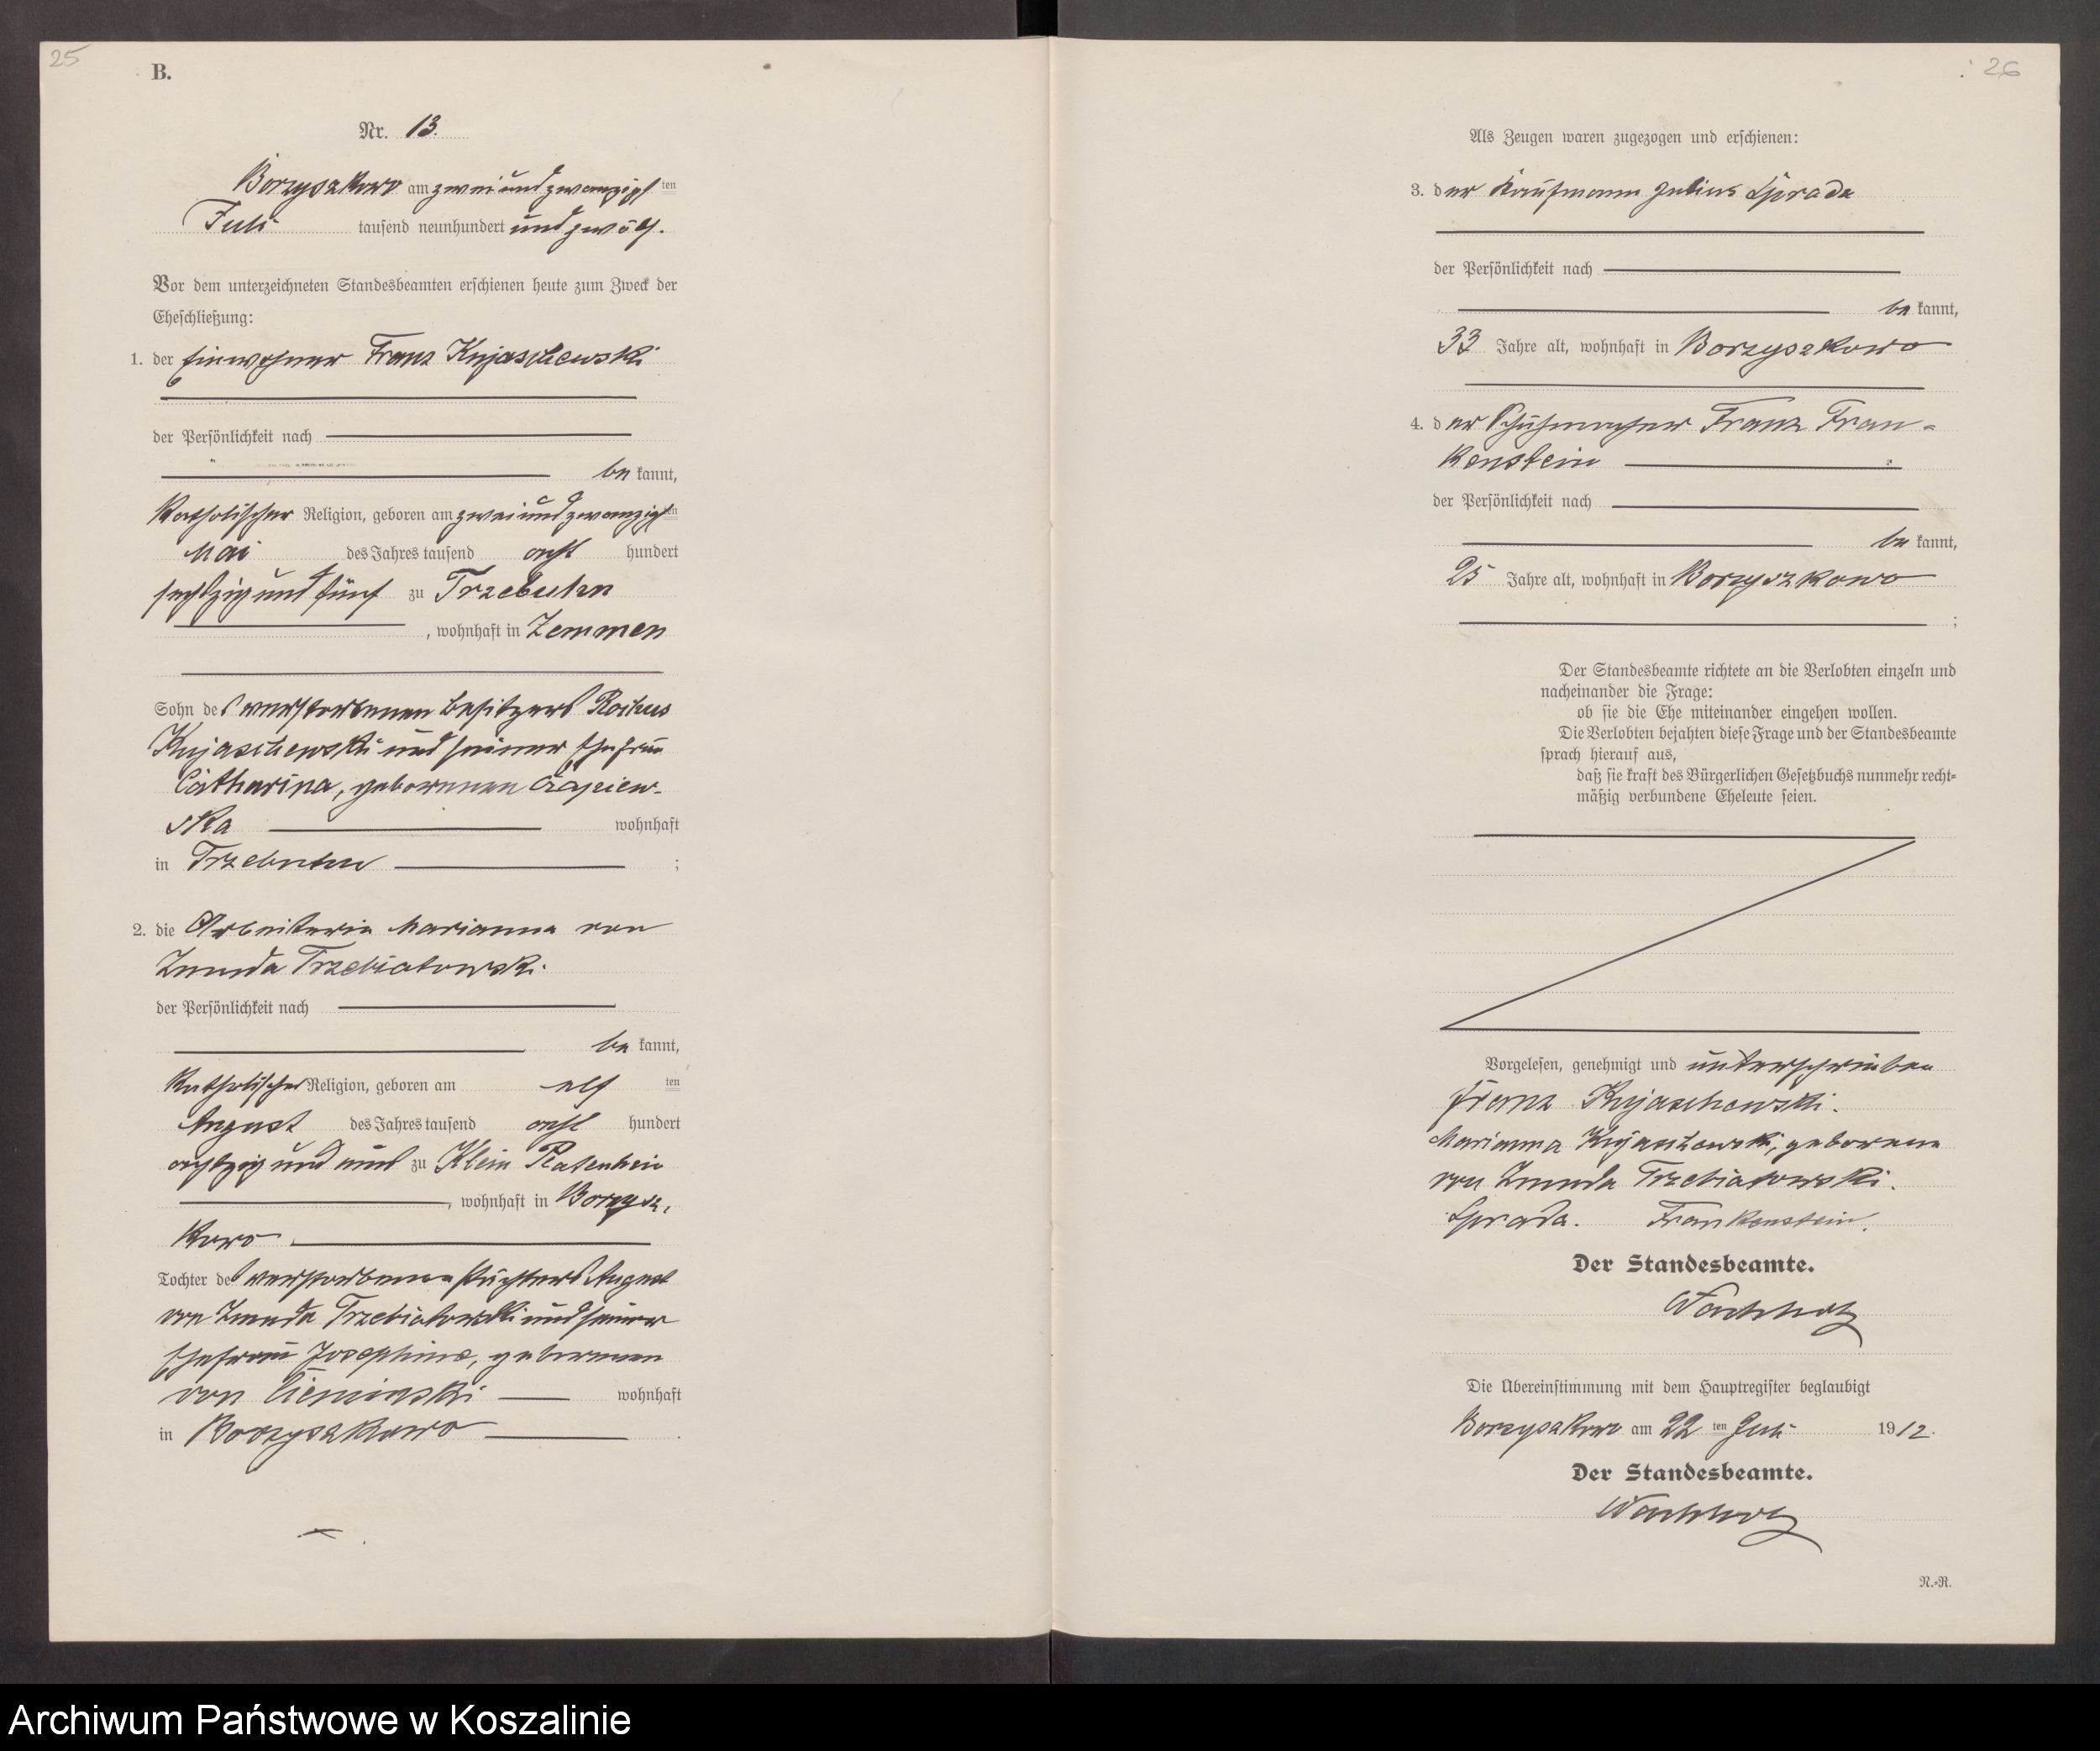 25
B.
Nr. 13.
Borzyszkowo am zweiundzwanzigsten
Juli tausend neunhundert und zwölf.
Vor dem unterzeichneten Standesbeamten erschienen heute zum Zweck der
Eheschließung:
1. der Einwohner Franz Kujaschewski
der Persönlichkeit nach
bekannt,
katholischer Religion, geboren am zweiundzwanzigsten
Mai des Jahres tausend acht hundert
sechzig und fünf zu Trzebuhn
, wohnhaft in Zemmen
Sohn des verstorbenen Besitzers Rochus
Kujaschewski und seiner Ehefrau
Catharina, geborenen
ska wohnhaft
in Trzebuhn ;
2. die Arbeiterin Marianna von
Zmuda Trzebiatowski
der Persönlichkeit nach
bekannt,
katholischer Religion, geboren am elf ten
August des Jahres tausend acht hundert
achtzig und eins zu Klein Platenhein
, wohnhaft in Borzysz,
kowo
Tochter des verstorbenen Pächters August
von Zmuda Trzebiatowski und seiner
Ehefrau Josephine, geborenen
von Cieminski wohnhaft
in Borzyszkowo .
26
Als Zeugen waren zugezogen und erschienen:
3. der Kaufmann Julius Sprada
der Persönlichkeit nach
bekannt,
33 Jahre alt, wohnhaft in Borzyszkowo
4. der Schuhmacher Franz Fran-
kenstein
der Persönlichkeit nach
bekannt,
25 Jahre alt, wohnhaft in Borzyszkowo
;
Der Standesbeamte richtete an die Verlobten einzeln und
nacheinander die Frage:
ob sie die Ehe miteinander eingehen wollen.
Die Verlobten bejahten diese Frage und der Standesbeamte
sprach hierauf aus,
daß sie kraft des Bürgerlichen Gesetzbuchs nunmehr recht-
mäßig verbundene Eheleute seien.
Vorgelesen, genehmigt und unterschrieben
Franz Kujaschewski.
Marianna Kujaschewski, geborene
von Zmuda Trzebiatowski.
Sprada. Frankenstein.
Der Standesbeamte.
Wachholz
Die Übereinstimmung mit dem Hauptregister beglaubigt
Borzyszkowo am 22 ten Juli 1912.
Der Standesbeamte.
Wachholz
N.-R.
Archiwum Państwowe w Koszalinie